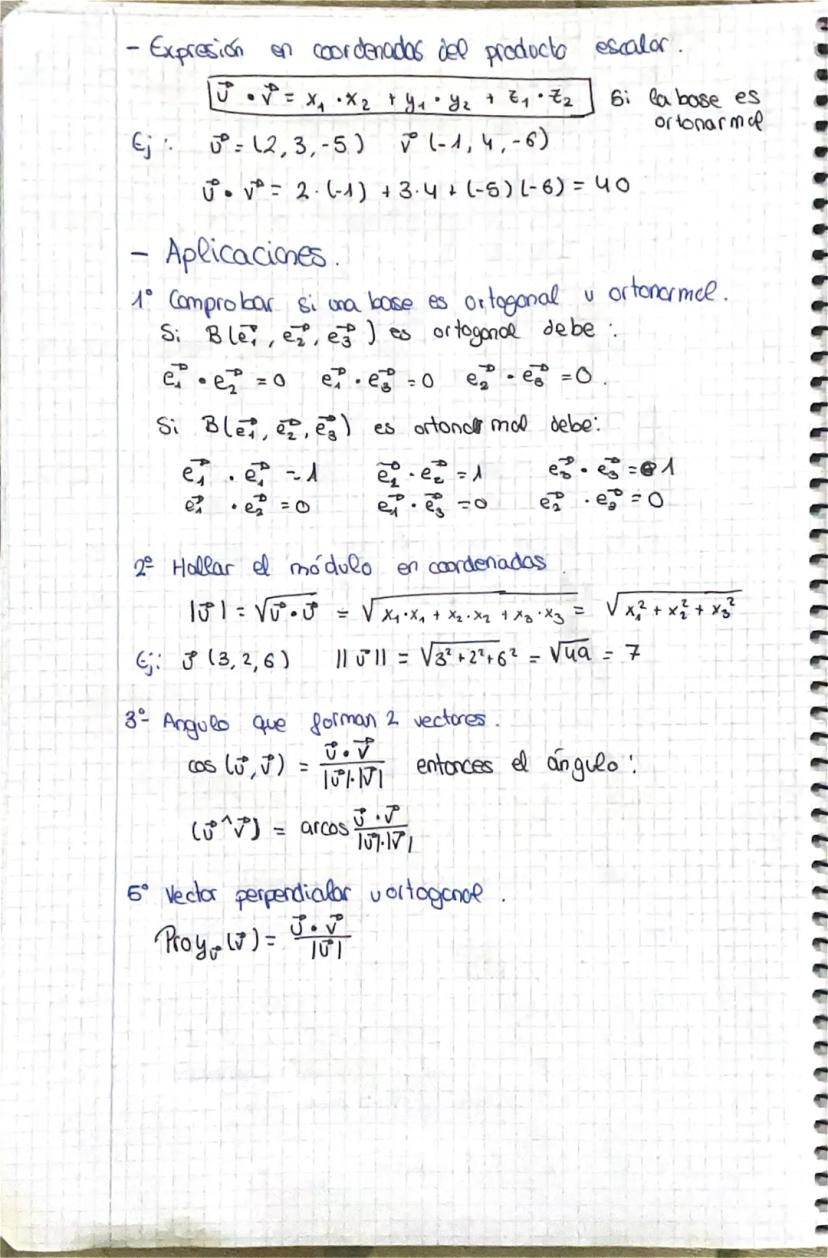 - Expresión en coordenadas del producto escalar.
u⃗ · v⃗ = x₁ · x₂ + y₁ · y₂ + z₁ · z₂ Si la base es
ortonormal
Ej: u⃗ = (2, 3, -5) v⃗ (-1, 4, -6)
u⃗ · v⃗ = 2 · (-1) + 3·4 + (-5)(-6) = 40
- Aplicaciones.
1º Comprobar si una base es ortogonal u ortonormal.
Si B(e₁⃗, e₂⃗, e₃⃗) es ortogonal debe:
e₁⃗ · e₂⃗ = 0 e₁⃗ · e₃⃗ = 0 e₂⃗ · e₃⃗ = 0.
Si B(e₁⃗, e₂⃗, e₃⃗) es ortonormal debe:
e₁⃗ · e₁⃗ = 1 e₂⃗ · e₂⃗ = 1 e₃⃗ · e₃⃗ = 1
e₁⃗ · e₂⃗ = 0 e₁⃗ · e₃⃗ = 0 e₂⃗ · e₃⃗ = 0
2º Hallar el módulo en coordenadas.
|u⃗| = √(u⃗ · u⃗) = √(x₁·x₁ + x₂·x₂ + x₃·x₃) = √(x₁² + x₂² + x₃²)
Ej: u⃗ (3, 2, 6) ||u⃗|| = √(3² + 2² + 6²) = √49 = 7
3º- Angulo que forman 2 vectores.
cos (u⃗, v⃗) = u⃗ · v⃗ / |u⃗| · |v⃗| entonces el ángulo:
(u⃗ ^ v⃗) = arcos u⃗ · v⃗ / |u⃗| · |v⃗|
5º Vector perpendialar u ortogonal.
Proy u⃗ (v⃗) = u⃗ · v⃗ / |u⃗|